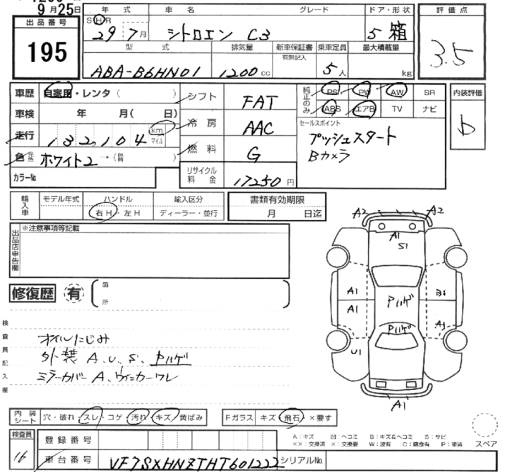 9月25日
出品番号
195
年式
車名
グレード
ドア・形状
評価点
S H R
29年7月
シトロエン C3
5 箱
3.5
型式
排気量
新車保証書
有無記入
乗車定員
最大積載量
ABA-B6HN01
1200cc
5人
kg
車歴
自家用・レンタ( )
シフト
FAT
純正のみ
PS PW AW SR
ABS エアB TV ナビ
内装評価
b
車検
年 月( 日)
冷房
AAC
セールスポイント
プッシュスタート
Bカメラ
走行
132,104
km
マイル
燃料
G
色
ホワイト2
カラー№
リサイクル料金
17250円
輸入車
モデル年式
ハンドル
輸入区分
右H・左H
ディーラー・並行
書類有効期限
月 日迄
出品店申告欄
※注意事項等記載
修復歴
有
箇所
検査員記入欄
オイルにじみ
外装 A、U、S、Pハゲ
ミラーカバーA、ウィンカーワレ
A2
A2
A1
S1
A1
A1
U1
Pハゲ
Pハゲ
A1
A1
内装シート
穴・破れ・スレ・コゲ・汚れ・キズ・黄ばみ
Fガラス
キズ・飛石・×要す
スペア
検査員
16
登録番号
車台番号
VF7SXHNZTHT601222
シリアル№